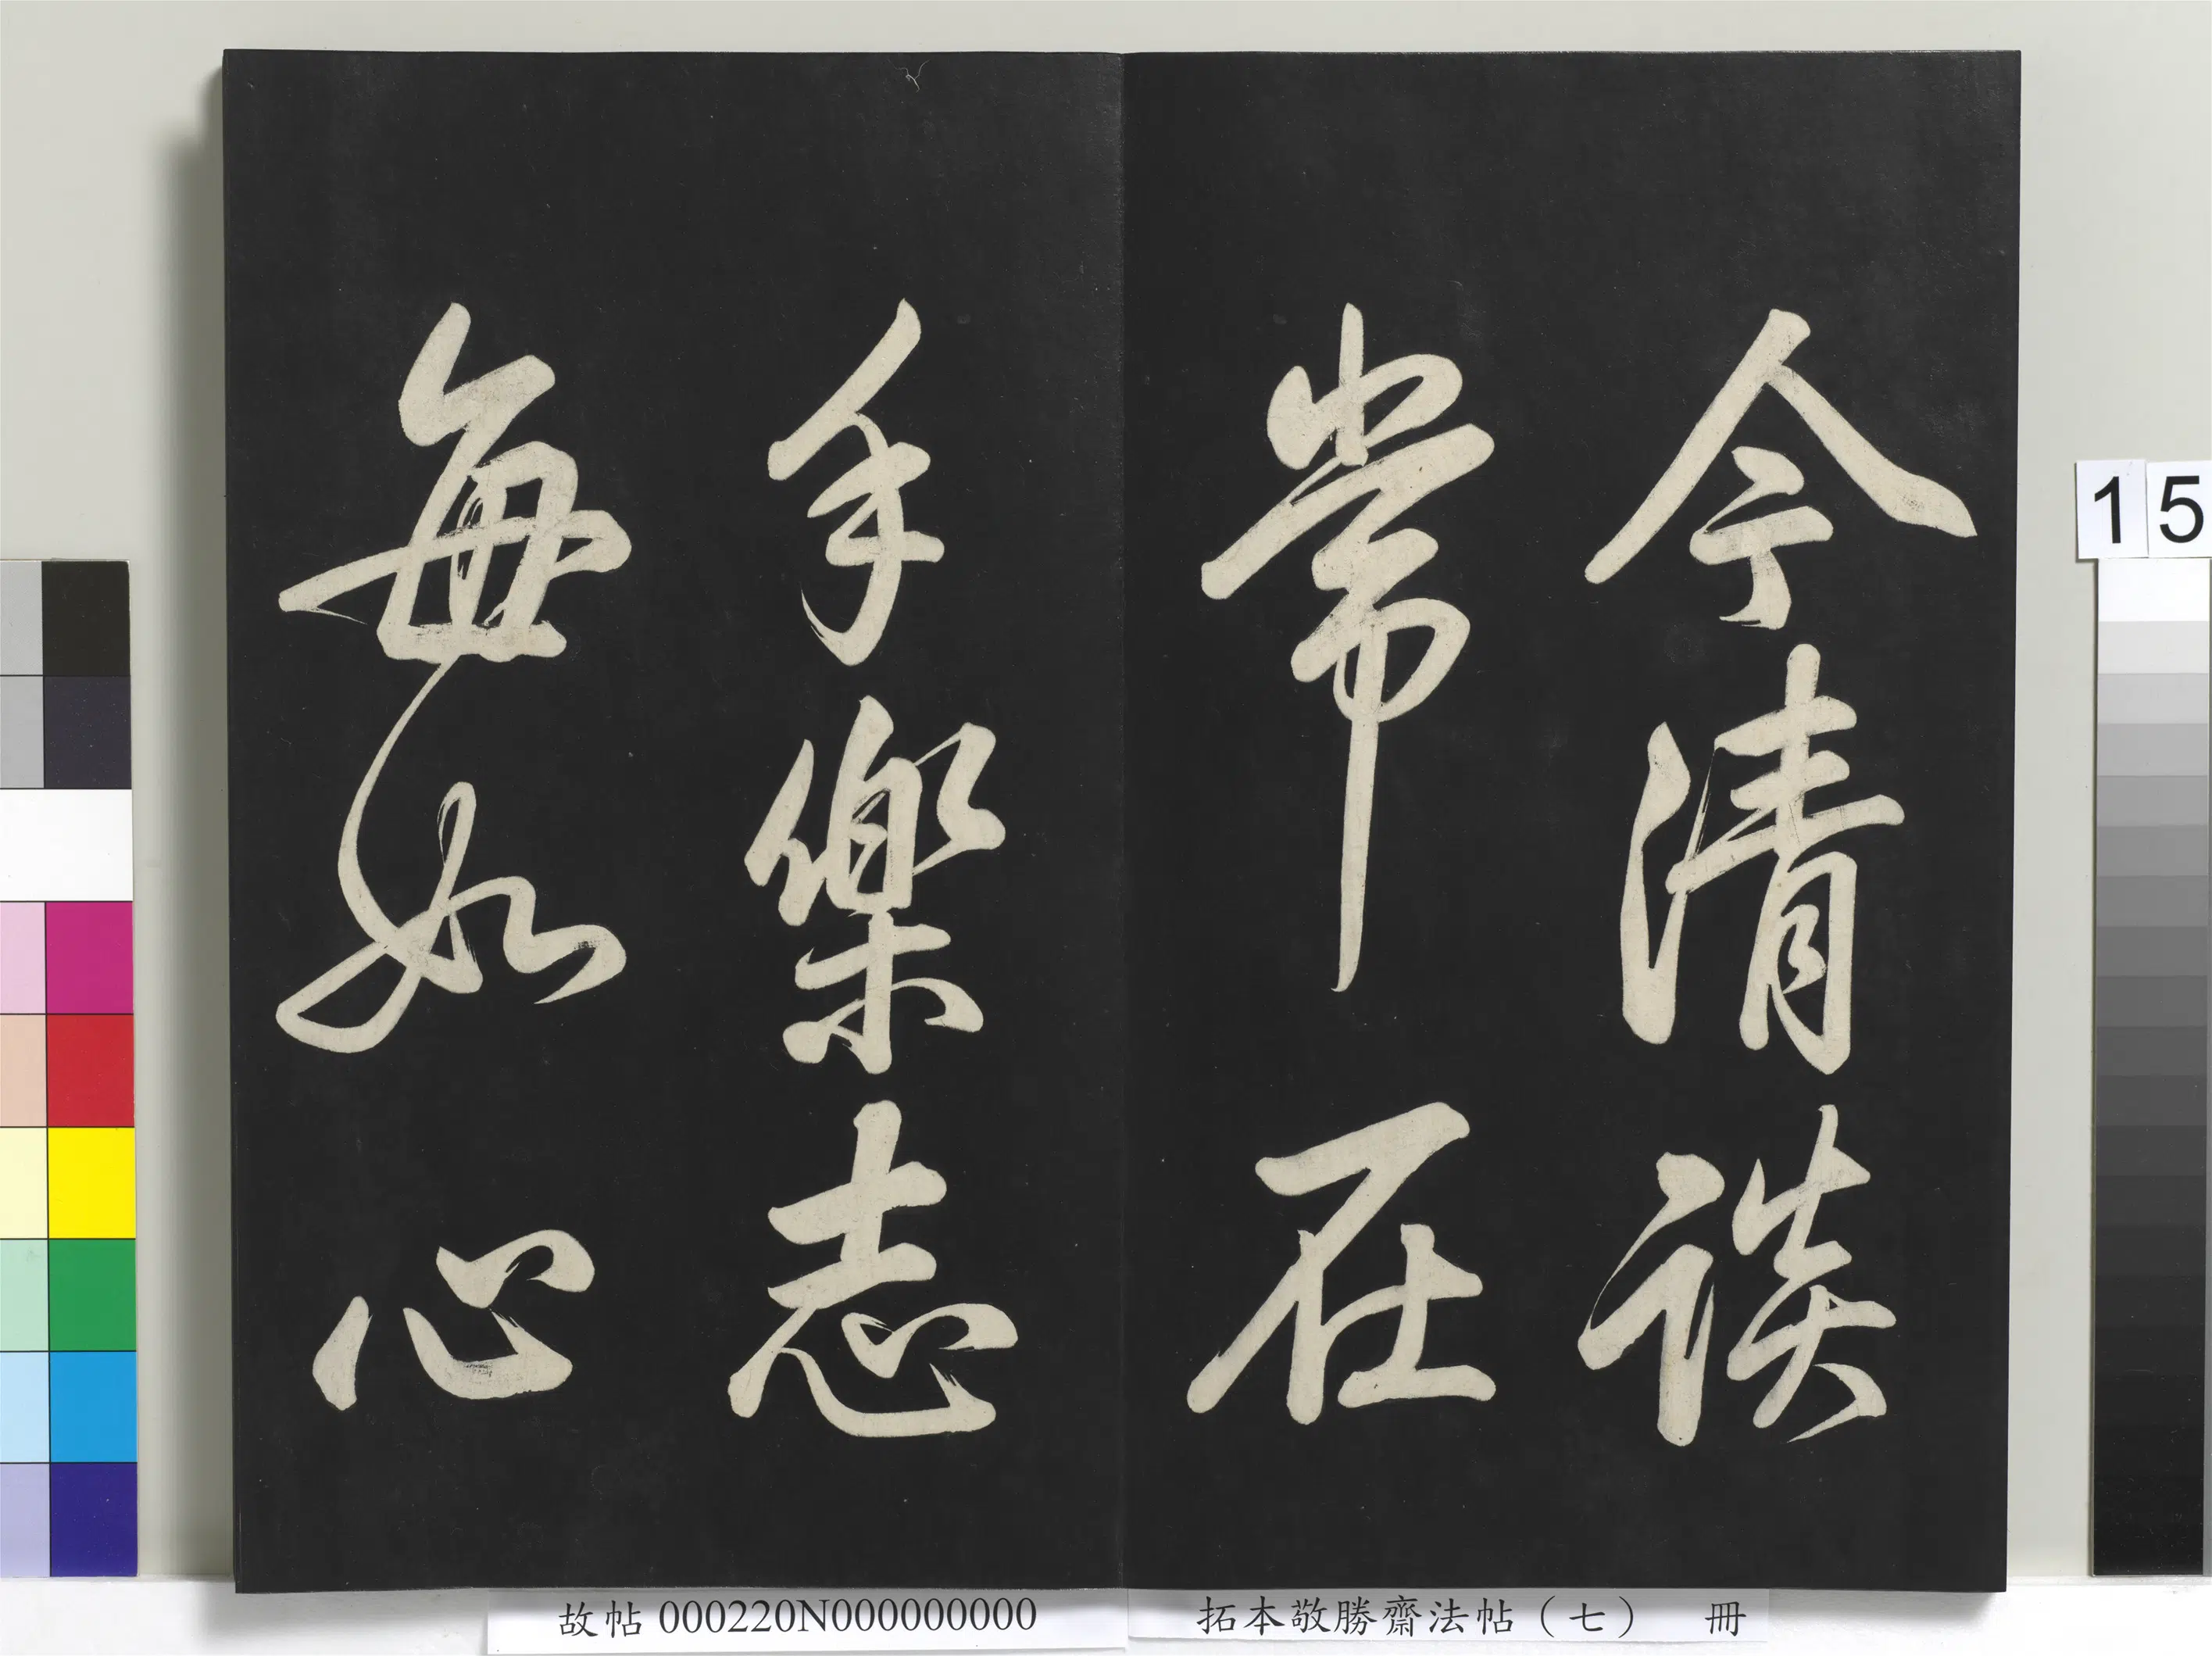 今清談
常在
手樂志
每如心
15
故帖 000220N000000000
拓本敬勝齋法帖（七） 冊